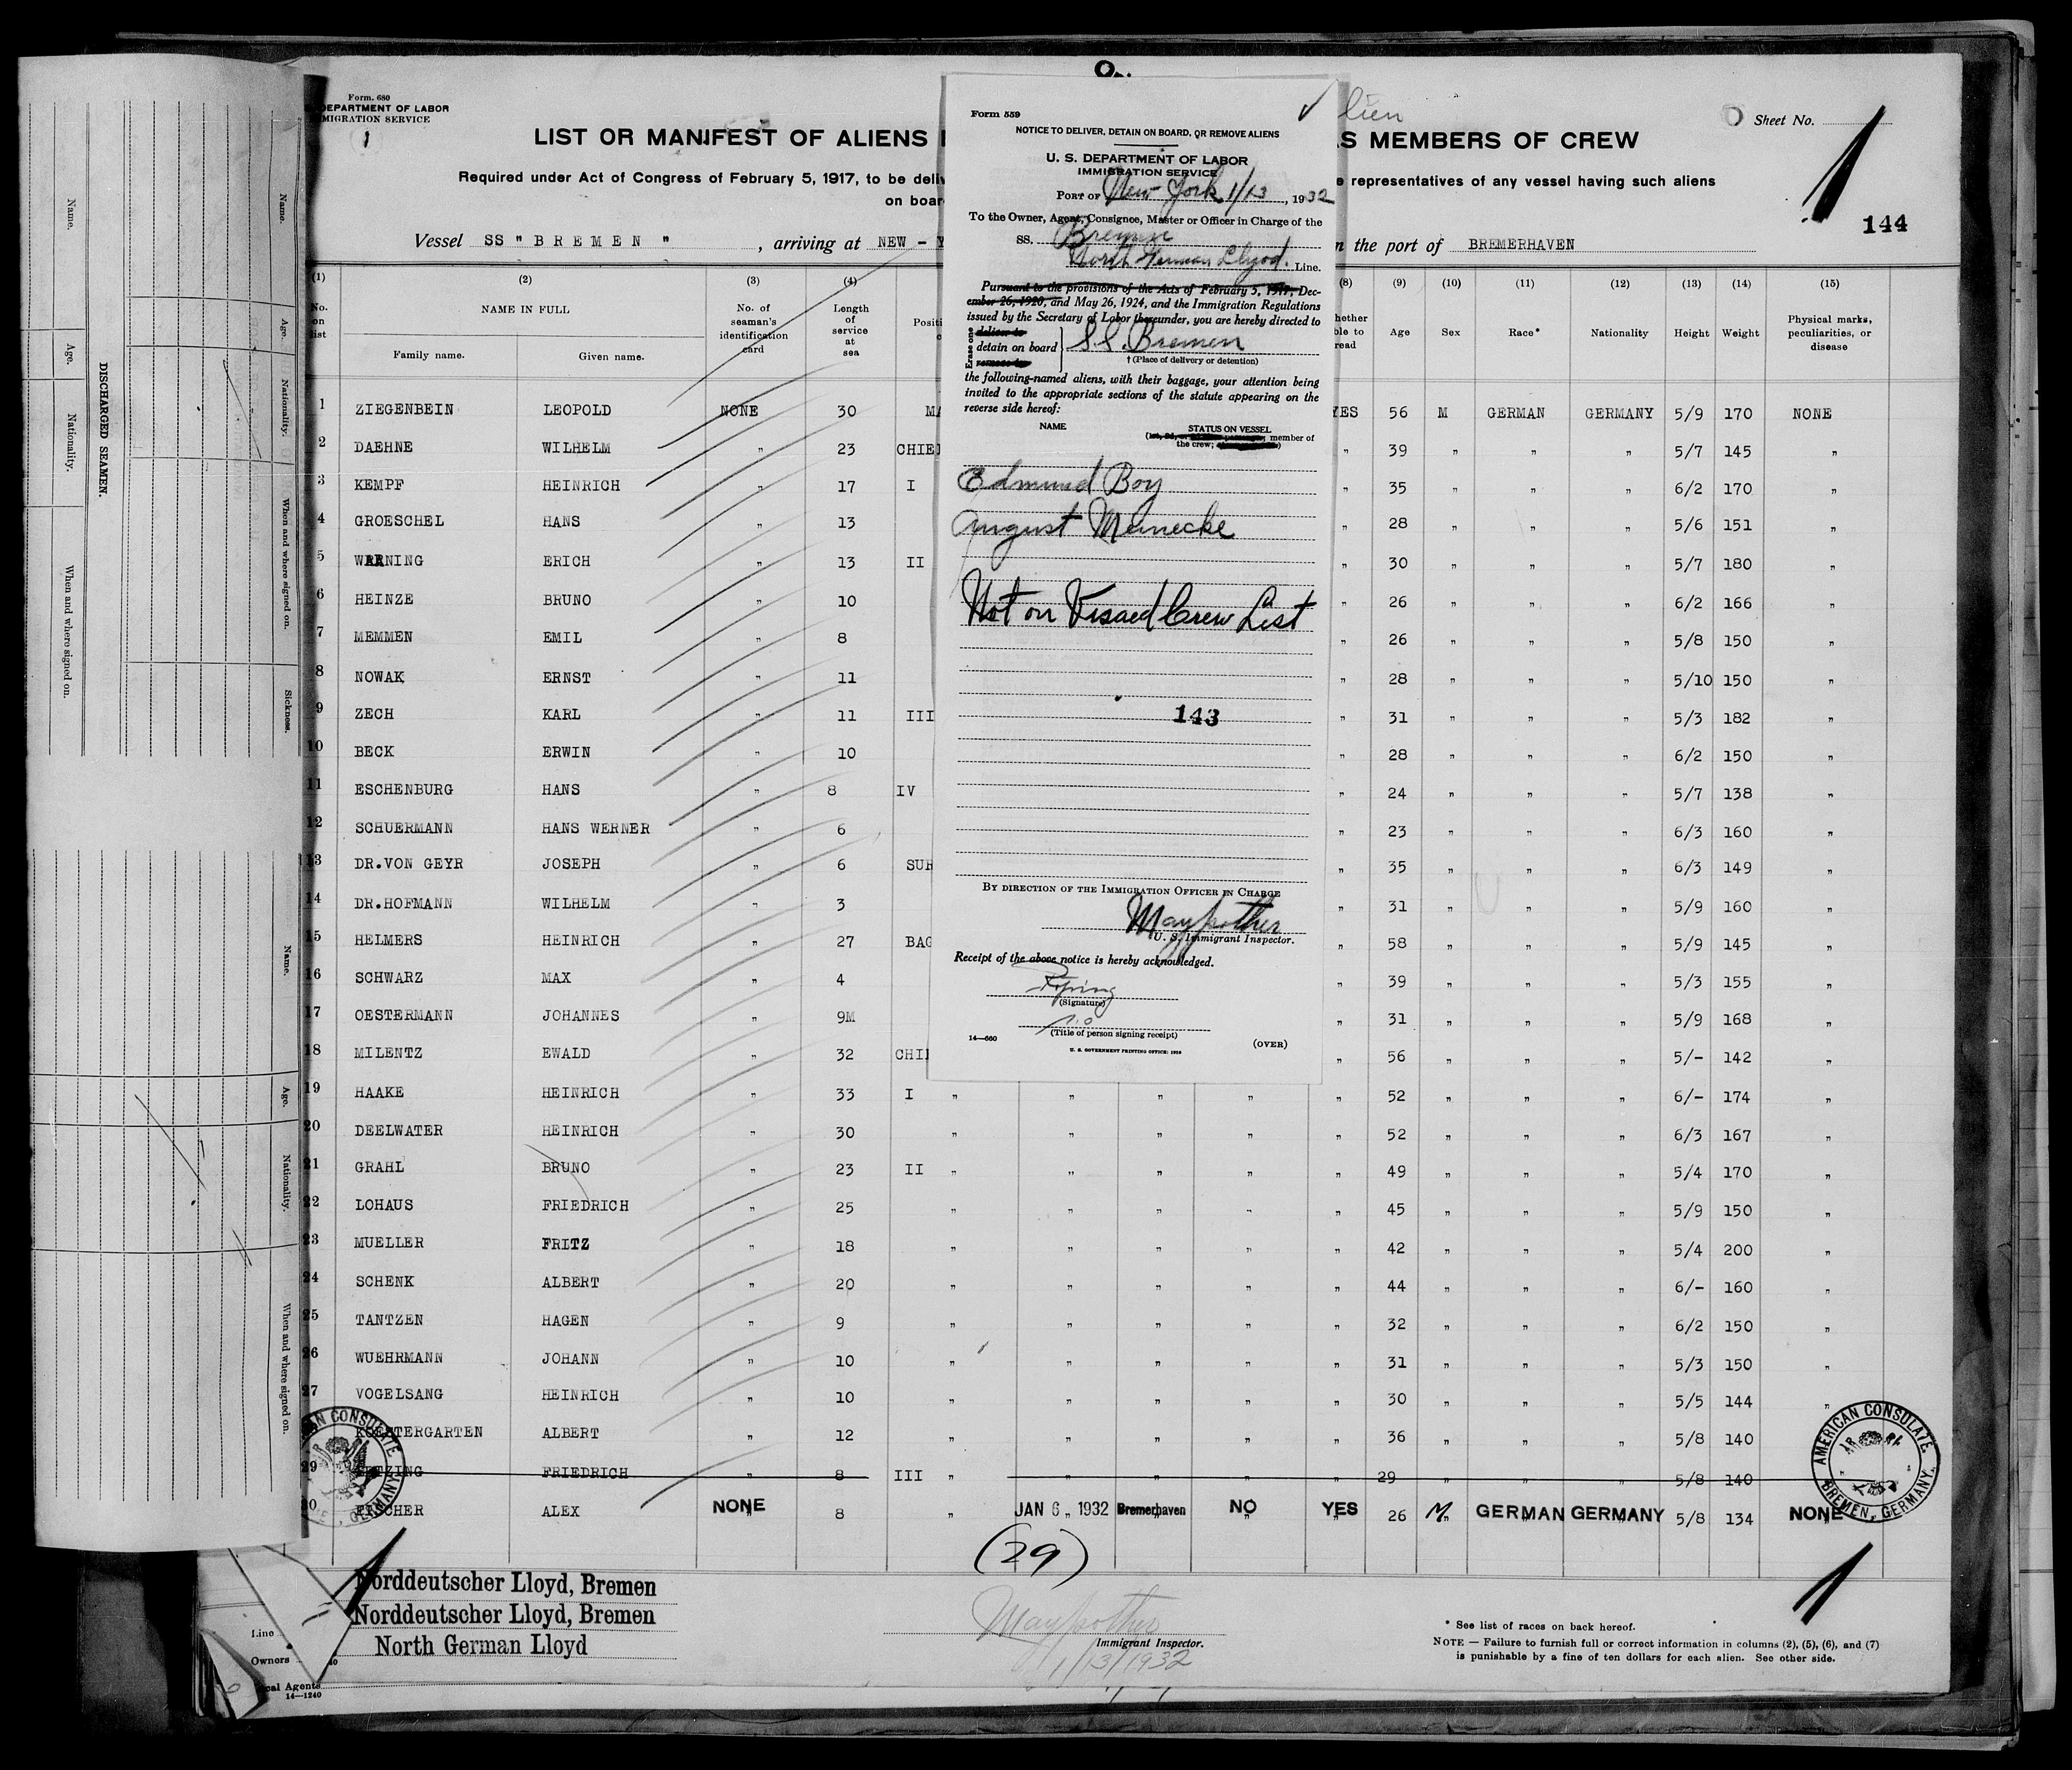 Form. 680
DEPARTMENT OF LABOR
MIGRATION SERVICE
1
LIST OR MANIFEST OF ALIENS
AS MEMBERS OF CREW
lien
Sheet No.
1
Required under Act of Congress of February 5, 1917, to be deliv
e representatives of any vessel having such aliens
on boar
144
Vessel SS " B R E M E N " , arriving at NEW - Y
n the port of BREMERHAVEN
Form 559
NOTICE TO DELIVER, DETAIN ON BOARD, OR REMOVE ALIENS
U. S. DEPARTMENT OF LABOR
IMMIGRATION SERVICE
PORT OF New York 1/13, 1932
To the Owner, Agent, Consignee, Master or Officer in Charge of the
SS. Bremen
North German Lloyd. Line.
Pursuant to the provisions of the Acts of February 5, 1917, Dec-
ember 26, 1920, and May 26, 1924, and the Immigration Regulations
issued by the Secretary of Labor thereunder, you are hereby directed to
Erase one
deliver to
detain on board } S.S. Bremen
remove to
† (Place of delivery or detention)
the following-named aliens, with their baggage, your attention being
invited to the appropriate sections of the statute appearing on the
reverse side hereof:
NAME STATUS ON VESSEL
member of
the crew;
Edmund Boy
August Meinecke
Not on Visaed Crew List
143
BY DIRECTION OF THE IMMIGRATION OFFICER IN CHARGE
Maypother
U. S. Immigrant Inspector.
Receipt of the above notice is hereby acknowledged.
(Signature)
(Title of person signing receipt)
14—660
(OVER)
U. S. GOVERNMENT PRINTING OFFICE: 1929
(1) (2) (3) (4) (8) (9) (10) (11) (12) (13) (14) (15)
No. on list
NAME IN FULL
Family name. Given name.
No. of seaman's identification card
Length of service at sea
Positi
hether ble to read
Age Sex Race* Nationality Height Weight
Physical marks, peculiarities, or disease
1 ZIEGENBEIN LEOPOLD NONE 30 MA YES 56 M GERMAN GERMANY 5/9 170 NONE
2 DAEHNE WILHELM " 23 CHIE " 39 " " " 5/7 145 "
3 KEMPF HEINRICH " 17 I " 35 " " " 6/2 170 "
4 GROESCHEL HANS " 13 " 28 " " " 5/6 151 "
5 WARNING ERICH " 13 II " 30 " " " 5/7 180 "
6 HEINZE BRUNO " 10 " 26 " " " 6/2 166 "
7 MEMMEN EMIL " 8 " 26 " " " 5/8 150 "
8 NOWAK ERNST " 11 " 28 " " " 5/10 150 "
9 ZECH KARL " 11 III " 31 " " " 5/3 182 "
10 BECK ERWIN " 10 " 28 " " " 6/2 150 "
11 ESCHENBURG HANS " 8 IV " 24 " " " 5/7 138 "
12 SCHUERMANN HANS WERNER " 6 " 23 " " " 6/3 160 "
13 DR.VON GEYR JOSEPH " 6 SUR " 35 " " " 6/3 149 "
14 DR.HOFMANN WILHELM " 3 " 31 " " " 5/9 160 "
15 HELMERS HEINRICH " 27 BAG " 58 " " " 5/9 145 "
16 SCHWARZ MAX " 4 " 39 " " " 5/3 155 "
17 OESTERMANN JOHANNES " 9M " 31 " " " 5/9 168 "
18 MILENTZ EWALD " 32 CHI " 56 " " " 5/- 142 "
19 HAAKE HEINRICH " 33 I " " " " " 52 " " " 6/- 174 "
20 DEELWATER HEINRICH " 30 " " " " " 52 " " " 6/3 167 "
21 GRAHL BRUNO " 23 II " " " " " 49 " " " 5/4 170 "
22 LOHAUS FRIEDRICH " 25 " " " " " 45 " " " 5/9 150 "
23 MUELLER FRITZ " 18 " " " " " 42 " " " 5/4 200 "
24 SCHENK ALBERT " 20 " " " " " 44 " " " 6/- 160 "
25 TANTZEN HAGEN " 9 " " " " " 32 " " " 6/2 150 "
26 WUEHRMANN JOHANN " 10 " " " " " 31 " " " 5/3 150 "
27 VOGELSANG HEINRICH " 10 " " " " " 30 " " " 5/5 144 "
KOESTERGARTEN ALBERT " 12 " " " " " 36 " " " 5/8 140 "
29 FRIEDRICH " 8 III " " " " " 29 " " " 5/8 140 "
30 FISCHER ALEX NONE 8 " JAN 6, 1932 Bremerhaven NO YES 26 M GERMAN GERMANY 5/8 134 NONE
AMERICAN CONSULATE
BREMEN, GERMANY.
AN CONSULATE
GERMANY
(29)
Norddeutscher Lloyd, Bremen
Norddeutscher Lloyd, Bremen
North German Lloyd
Line
Owners
cal Agents
14—1240
Maypother
Immigrant Inspector.
1/13/1932
1
* See list of races on back hereof.
NOTE — Failure to furnish full or correct information in columns (2), (5), (6), and (7)
is punishable by a fine of ten dollars for each alien. See other side.
DISCHARGED SEAMEN.
Name.
Age.
Nationality.
When and where signed on.
Name.
Age.
Nationality.
When and where signed on.
Sickness.
Name.
Age.
Nationality.
When and where signed on.